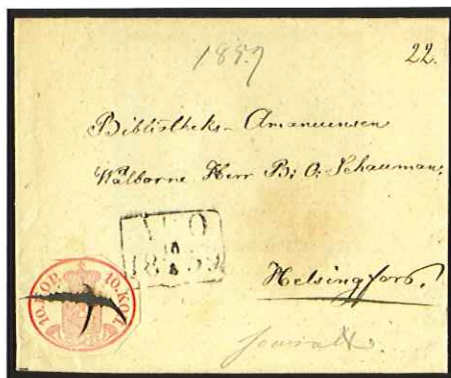 1859
22.
Bibliotheks-Amanuensen
Wälborne Herr B: O: Schauman.
ÅBO
1859
Helsingfors.
10.KOP. 10.KOP.